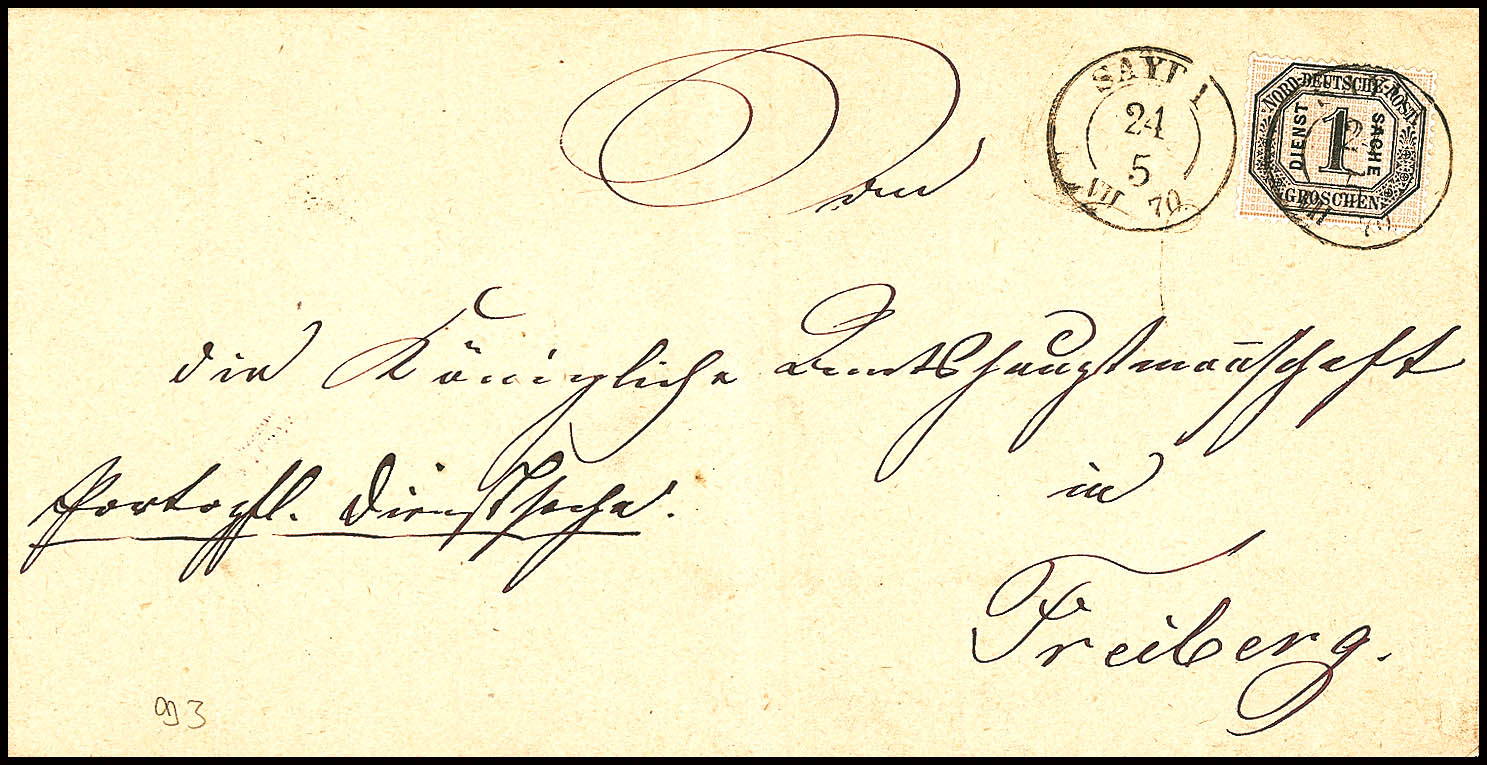 SAYDA
24
5
VII 70
NORD-DEUTSCHE-POST
DIENST 1 SACHE
GROSCHEN
An
die Königliche Amtshauptmannschaft
Portopfl. Dienstsache.
in
Freiberg.